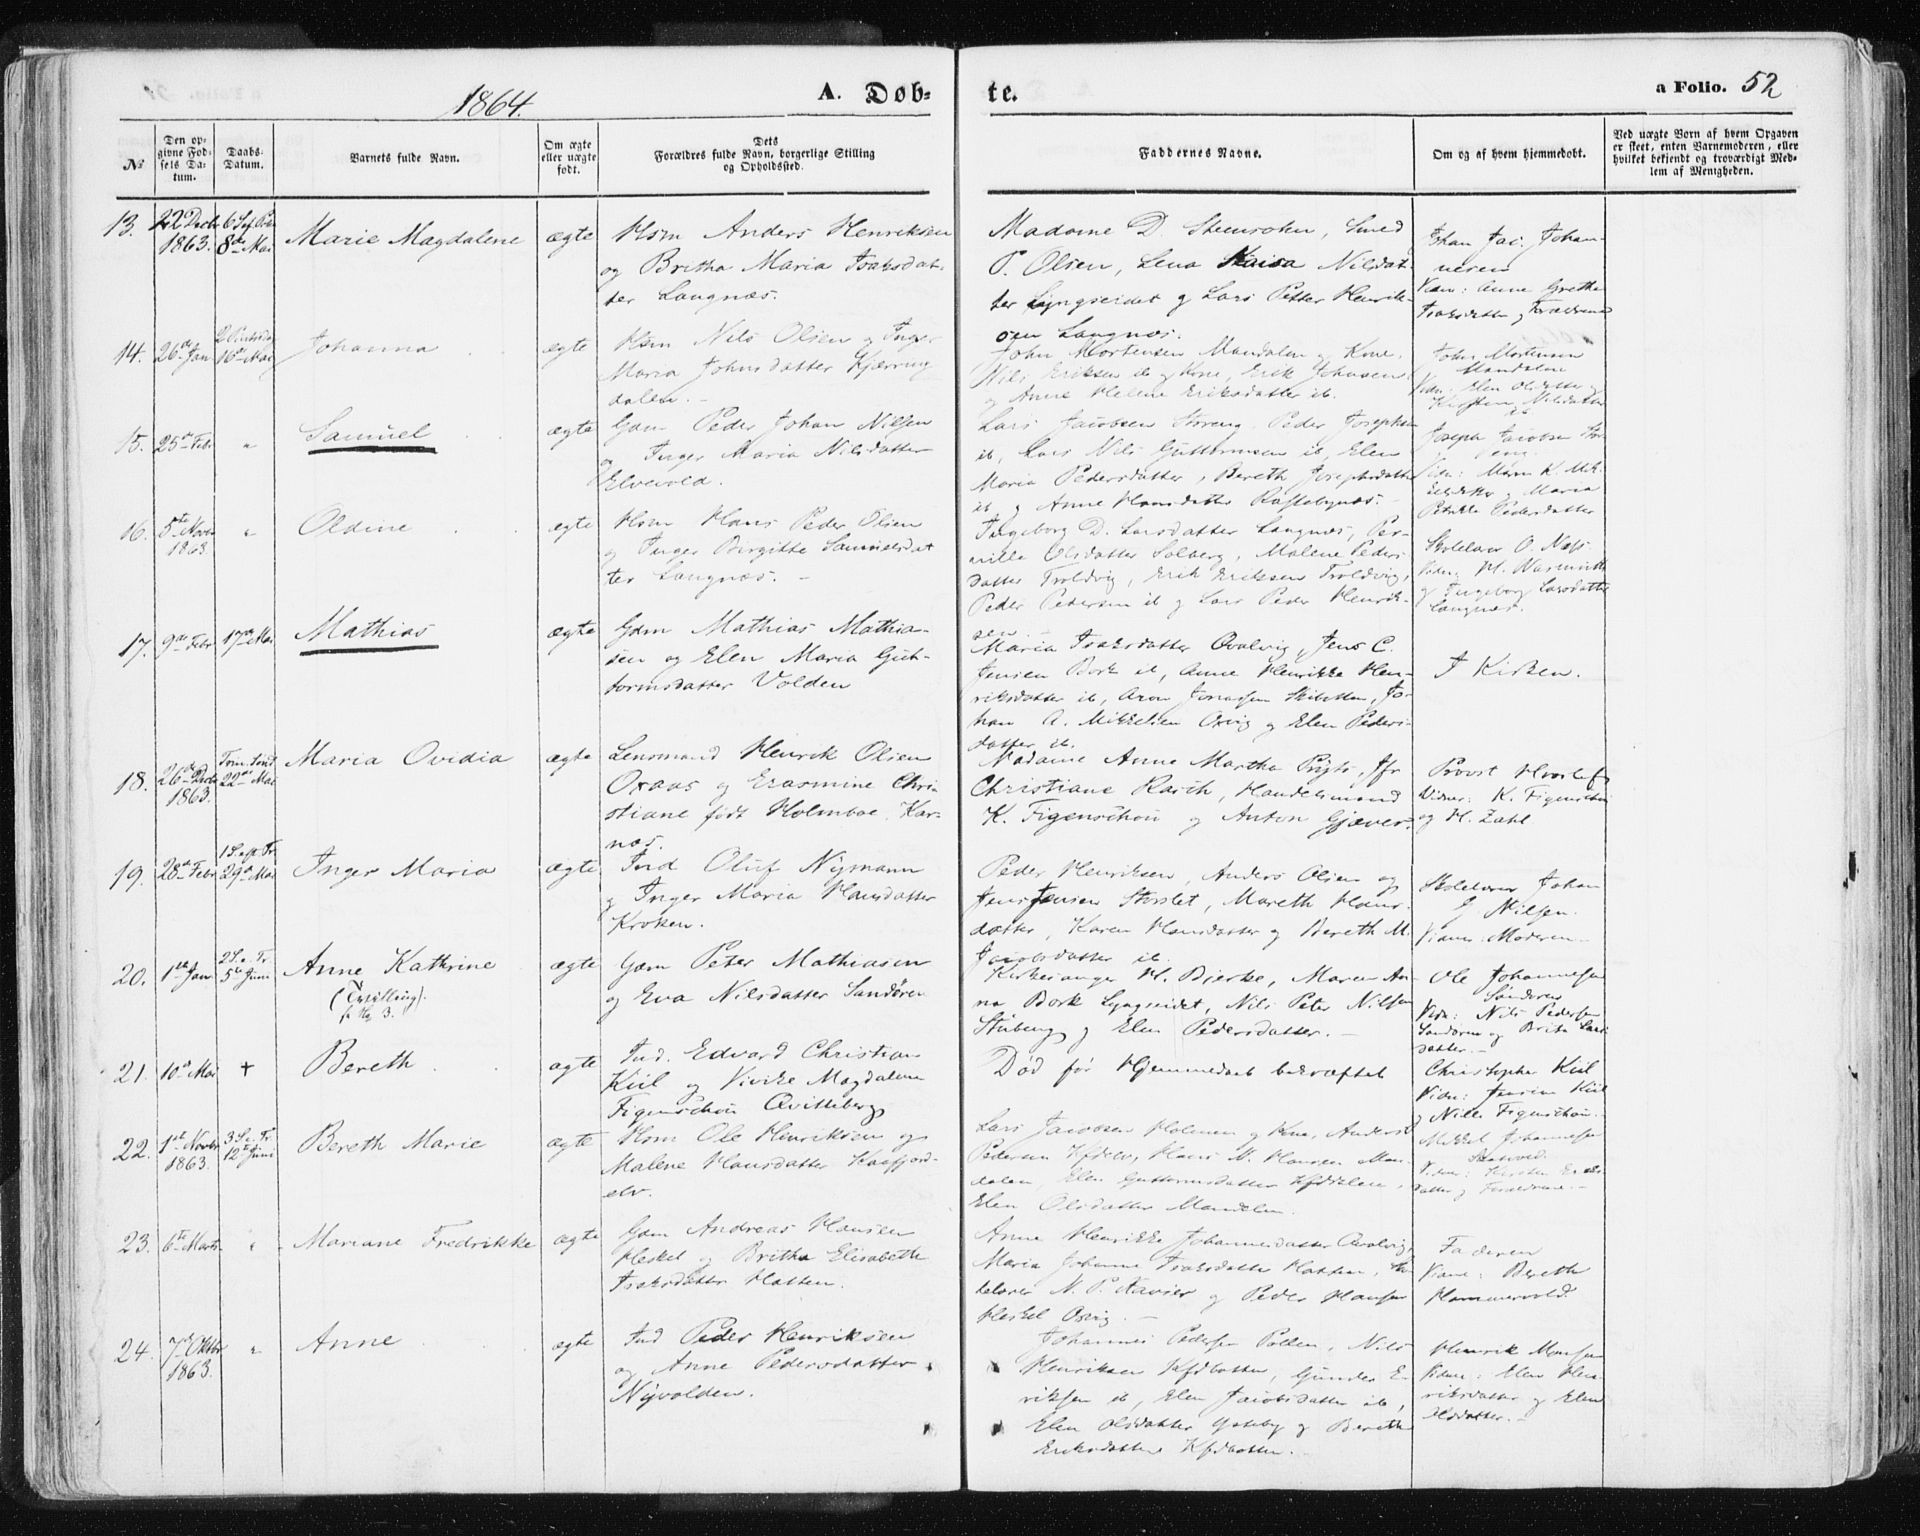 1864.
A. Døb-
te.
a Folio. 52
No
Den op-
givne Fød-
sels Da-
tum.
Daabs-
Datum.
Barnets fulde Navn.
Om ægte
eller uægte
født.
Dets
Forældres fulde Navn, borgerlige Stilling
og Opholdssted.
Faddernes Navne.
Om og af hvem hjemmedøbt.
Ved uægte Børn af hvem Opgaven
er skeet, enten Barnemoderen, eller
hvilket bekjendt og troværdigt Med-
lem af Menigheden.
13.
22 Decbr
1863.
8de Mai
Marie Magdalene
ægte
Hsm Anders Henriksen
og Britha Maria Isaksdat-
ter Langnæs.
Madame D. Steensohn, Smed
P. Olsen, Lena Kaisa Nilsdat-
ter Lyngseidet g Lars Petter Henrik-
sen Langnæs.
Johan Jac. Johan-
nesen
Vidn: Anne Grethe
Isaksdatter g Forældrene
14.
26de Jan
16de Mai
Johanna
ægte
Hsm Nils Olsen og Inger
Maria Johnsdatter Kjerring
dalen.
John Mortensen Mandalen g Kone,
Nils Eriksen ib g Kone, Erik Johnsen
g Anne Helene Eriksdatter ib.
John Mortensen
Mandalen
Vidn: Elen Olsdatter g
Kirsten Nilsdatter
ib
15.
25de Febr
"
Samuel
ægte
Gdm Peder Johan Nilsen
g Inger Maria Nilsdatter
Elvevold.
Lars Jacobsen Storeng, Peder Josephsen
ib, Lars Nils Guttormsen ib, Elen
Maria Pedersdatter, Bereth Josephsdatter
ib g Anne Hansdatter Rasteby­næs.
Joseph Jacobsen Stor
eng
Vidn: Maren K. Mik-
kelsdatter g Maria
Petrikke Pedersdatter
16.
5te Novbr
1863
"
Oldine
ægte
Hsm Hans Peder Olsen
g Inger Birgitte Samuelsdat
ter Langnæs.
Ingeborg D. Larsdatter Langnæs, Per-
nille Olsdatter Solberg, Malene Peders
datter Troldvig, Erik Eriksen Troldvig,
Peder Pedersen ib g Lars Peder Henrik-
sen
Skolelærer O. Næss
Vidn: H.
g Ingeborg Larsdatter
Langnæs.
17.
9de Febr
17de Mai
Mathias
ægte
Gdm Mathias Mathia-
sen og Elen Maria Gut-
tormsdatter Volden
Maria Isaksdatter Qvalvig, Jens C.
Jensen Bork ib, Anne Henrikke Hen-
riksdatter ib, Aron Jonassen Skibotten, Jo-
han A. Mikkelsen Oxvig g Elen Peders-
datter ib.
I Kirken.
18.
26de Decbr
1863.
Trin. Sønd
22de Mai
Maria Ovidia
ægte
Lensmand Henrik Olsen
Oxaas g Erasmine Chri-
stiane født Holmboe, Kar-
næs.
Madame Anne Martha Rigts, Jfr
Christiane Rasch, Handelsmand
K. Figenschou g Anton Gjæver.
Provst Hvoslef
Vidner: K. Figenschou
og H. Zahl
19.
28de Febr
1 S. e. Tr.
29de Mai
Inger Maria
ægte
Ind Oluf Nymann
g Inger Maria Hansdatter
Kroken.
Peder Henriksen, Anders Olsen og
Jens Jensen Storslet, Mareth Hans-
datter, Karen Hansdatter g Bereth M.
Jacobsdatter ib.
Skolelærer Johan
G. Nilsen.
Vidner: Moderen
20.
1ste Jan
2 S. e. Tr.
5te Juni
Anne Kathrine
(Tvilling).
fr No 3.
ægte
Gdm Peter Mathiasen
og Eva Nilsdatter Sandøren
Kirkesanger H. Bjerke, Maren An-
na Bork Lyngseidet, Nils Peter Nilsen
Stuberg g Elen Pedersdatter.
Ole Johannesen
Sandøren
Vidn: Nils Pedersen
Sandøren og Brita Lars
datter.
21.
10de Mai
+
Bereth
ægte
Ind. Edvard Christian
Kiil og Vivike Magdalena
Figenschou Qvitteberg
Død før Hjemmedaab bekræftet
Christopher Kiil
Vidn: Jensine Kiil
g Nille Figenschou.
22.
1ste Novbr
1863.
3 S. e. Tr.
12te Juni
Bereth Marie
ægte
Hsm Ole Henriksen og
Malene Hansdatter Kaafjord-
elv.
Lars Jacobsen Holmen g Kone, Anders
Pedersen Kfdelv, Hans N. Hansen Man-
dalen, Elen Guttormsdatter Kfdelven,
Elen Olsdatter Mandalen.
Mikkel Johannesen
Vidner: Kirsten
datter g Forældrene.
23.
6te Marts
"
Mariane Fredrikke
ægte
Gdm Andreas Hansen
Heskel g Britha Elisabeth
Isaksdatter Hatten.
Anne Henrikke Johannesdatter Qvalvig,
Maria Johanne Isaksdatter Hatten, Sko
lelærer N. P. Xavier g Peder Hansen
Heskel Oxvig.
Faderen
Vidne: Bereth
Hammervold.
24.
7de Oktbr
1863.
"
Anne
ægte
Ind Peder Henriksen
og Anne Pedersdatter
Nyvolden.
Johannes Pedersen Pollen, Nils
Henriksen Kfdbotten, Gunder E-
riksen ib, Elen Jacobsdatter ib,
Elen Olsdatter Ysteby g Bereth
Eriksdatter Kfdbotten.
Henrik Monsen
Vidne: Elen Hen-
riksdatter og Elen
Olsdatter.